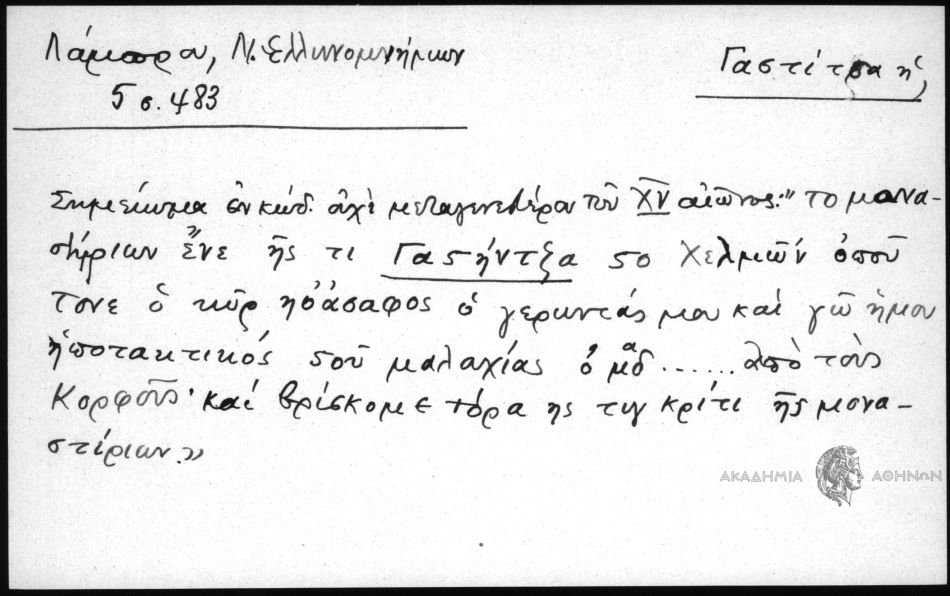 Λάμπρου, Ν. Ἑλληνομνήμων
5 σ. 483
Γαστίτσα ἡ,
Σημείωμα ἐν κώδ. ὀχὶ μεταγενεστέρου τοῦ XV αἰῶνος: "το μανα-
στήριων ἔνε ῆς τι Γαςήντζα ςο Χελμιῶν ὁποῦ
τονε ὁ κῦρ ηοάσαφος ὁ γεροντάς μου καὶ γῶ ήμου
ἡποτακτικός ςου μαλαχίας ὁ μαδ ...... ἀπὸ τοὺς
Κορφοῦς· καὶ βρίσκομε τόρα ης τιγ κρίτι ῆς μονα-
στίριων.»
ΑΚΑΔΗΜΙΑ ΑΘΗΝΩΝ